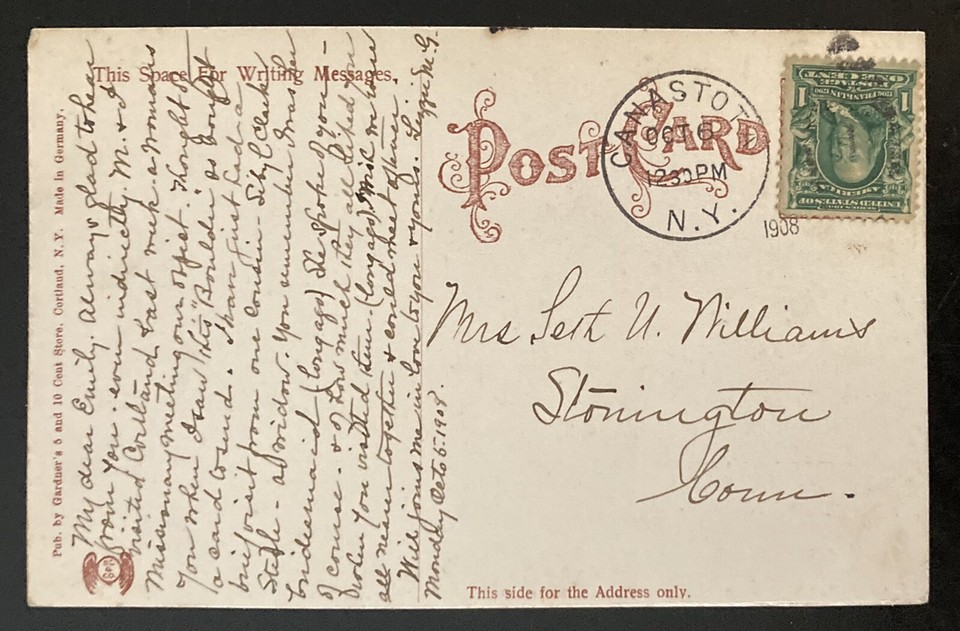 This Space For Writing Messages.
Pub. by Gardner's 5 and 10 Cent Store, Cortland, N. Y. Made in Germany.
My dear Emily. Always glad to hear
from you. even indirectly. M. & I
visited Cortland last week a Womans
Missionary meeting our object. Thought of
you when I saw this "Boulder" so bought
a card to send. I have just had a
brief visit from one cousin - Siby Clarke
Still - a widow. You remember I was her
bridesmaid (long ago) She spoke of you -
of course - & of how much they all liked you
when you visited them (long ago). Wish we could
all reune together & could meet often.
Will joins me in love to you & yours. Lizzie M. G.
Monday Oct 5. 1908.
POST CARD
CANASTOT
OCT 6
12 30 PM
N. Y.
1908
UNITED STATES OF
AMERICA
1706 FRANKLIN 1790
POSTAGE
ONE CENT
1 1
Mrs Seth U. Williams
Stonington
Conn.
This side for the Address only.